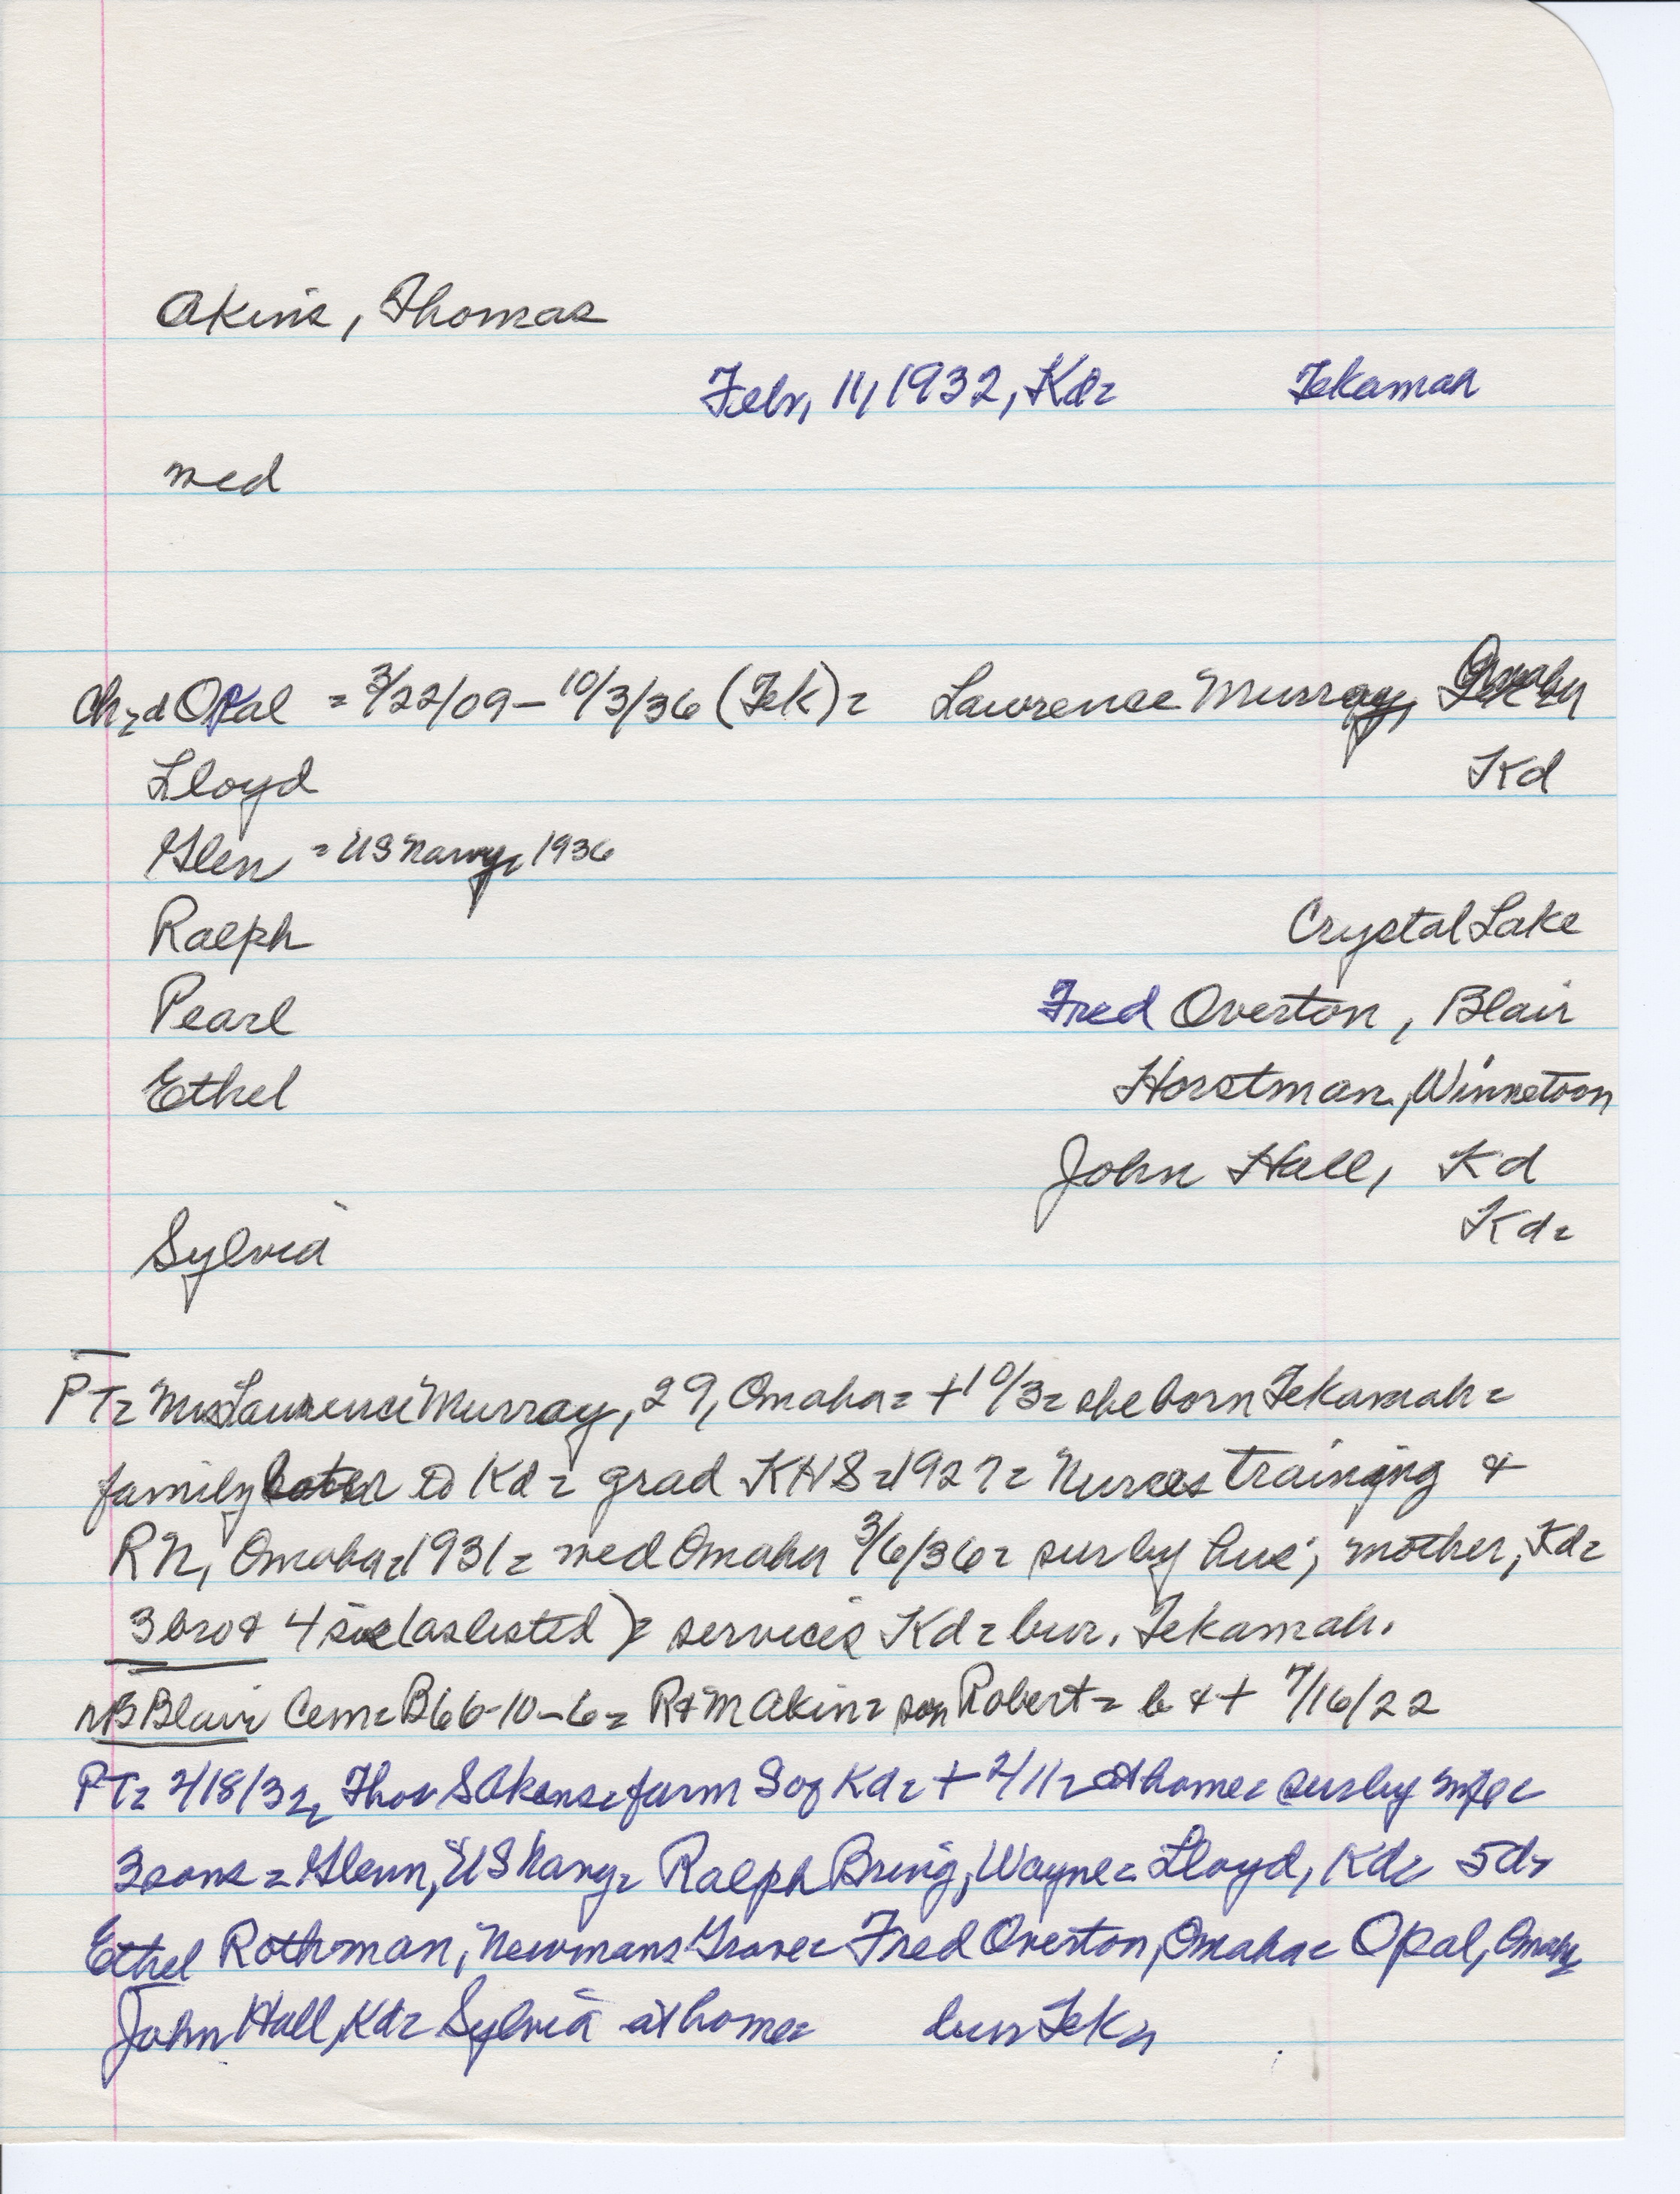 Akins, Thomas
Febr, 11, 1932, Kd= Tekamah
med
Ch=d Opal = 3/22/09 – 10/3/36 (Tek)= Lawrence Murray,
Lloyd Kd
Glen = US Navy, 1936
Ralph Crystal Lake
Pearl Fred Overton, Blair
Ethel Horstman, Winnetoon
John Hall, Kd
Kd=
Sylvia
PT= Mrs Lawrence Murray, 29, Omaha= + 10/3= she born Tekamah=
family to Kd= grad KHS=1927= Nurses training &
RN, Omaha=1931= med Omaha 3/6/36= sur by hus; mother, Kd=
3 bro & 4 sis (as listed)= services Kd= bur. Tekamah.
NB Blair Cem= B66-10-6= R&M Akin= son Robert= b & + 7/16/22
PT= 2/18/32, Thos S Akens= farm S of Kd= + 2/11= at home= sur by wife=
3 sons= Glenn, US Navy= Ralph Bring, Wayne= Lloyd, Kd= 5d=
Ethel Rothman, Newmans Grove= Fred Overton, Omaha= Opal, Omaha
John Hall, Kd= Sylvia at home= bur Tek=